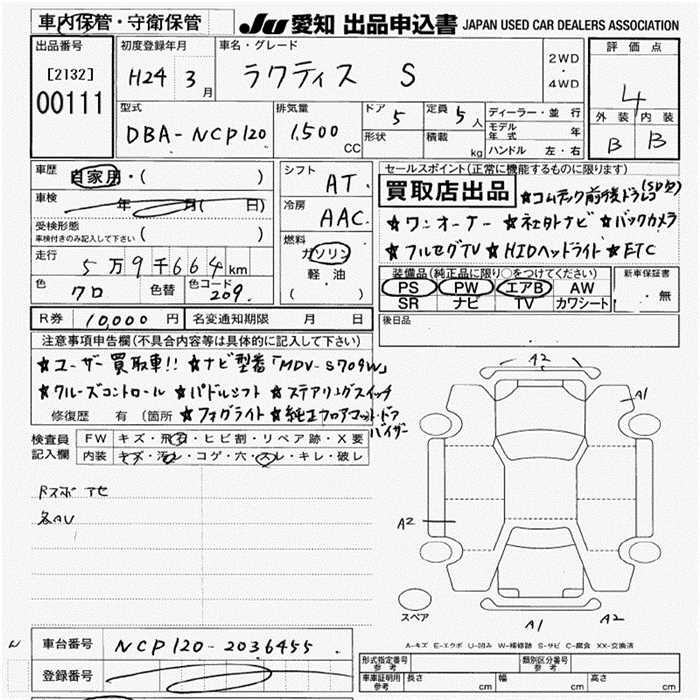 車内保管・守衛保管
JU 愛知 出品申込書 JAPAN USED CAR DEALERS ASSOCIATION
出品番号
[2132]
00111
初度登録年月
H24 3月
車名・グレード
ラクティス S
2WD
・
4WD
評価点
4
外装 内装
B B
型式
DBA-NCP120
排気量
1,500 CC
ドア 5
定員 5人
形状
積載 kg
ディーラー・並行
モデル年式 年
ハンドル 左・右
車歴
自家用・( )
車検
年 月( 日)
受検形態
車検付きのみ記入して下さい ( )
走行
5万9千664km
色 クロ 色替 色コード 209.
シフト
AT.
冷房
AAC.
燃料
ガソリン
軽油
( )
セールスポイント(正常に機能するものに限ります)
買取店出品 ★コムテック前後ドラレコ
★ワンオーナー ★社外ナビ ★バックカメラ
★フルセグTV ★HIDヘッドライト ★ETC
装備品(純正品に限り○をつけてください)
PS PW エアB AW
SR ナビ TV カワシート
新車保証書
・無
後日品
R券 10,000円 名変通知期限 月 日
注意事項申告欄(不具合内容等は具体的に記入して下さい)
★ユーザー買取車!! ★ナビ型番「MDV-S709W」
★クルーズコントロール ★パドルシフト ★ステアリングスイッチ
修復歴 有(箇所 ★フォグライト ★純正フロアマット・ドアバイザー
検査員記入欄
FW キズ・飛石・ヒビ割・リペア跡・X要
内装 キズ・汚レ・コゲ・穴・スレ・キレ・破レ
各ヘU
A2
A1
A2
A1
A2
スペア
A-キズ E-エクボ U-凹み W-補修跡 S-サビ C-腐食 XX-交換済
車台番号 NCP120-2036455.
登録番号
形式指定番号
参考
類別区分番号
参考
車庫証明
参考
長さ cm 幅 cm 高さ cm